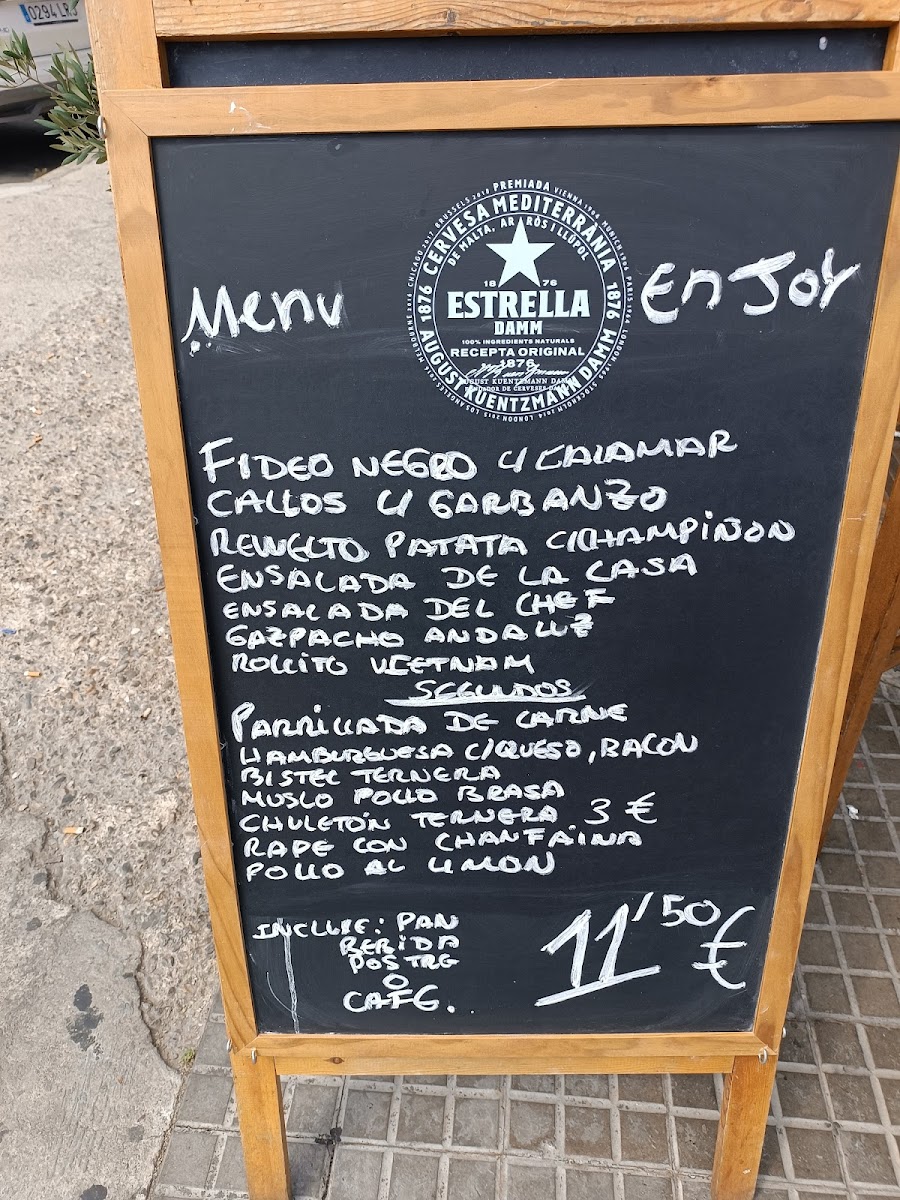 0294 LRS
Menu
EnJoy
PREMIADA
CERVESA MEDITERRÀNIA
DE MALTA, ARRÒS I LLÚPOL
1876
1876
18 76
ESTRELLA
DAMM
100% INGREDIENTS NATURALS
RECEPTA ORIGINAL
1876
AUGUST KUENTZMANN DAMM
FUNDADOR DE CERVESES DAMM
AUGUST KUENTZMANN DAMM
FIDEO NEGRO C/ CALAMAR
CALLOS C/ GARBANZO
REVUELTO PATATA C/CHAMPIÑON
ENSALADA DE LA CASA
ENSALADA DEL CHEF
GAZPACHO ANDALUZ
ROLLITO VIETNAM
SEGUNDOS
PARRILLADA DE CARNE
HAMBURGUESA C/QUESO, BACON
BISTEC TERNERA
MUSLO POLLO BRASA
CHULETÓN TERNERA 3 €
RAPE CON CHANFAINA
POLLO AL LIMON
INCLUIE: PAN
BEBIDA
POSTRE
O
CAFE.
11'50 €